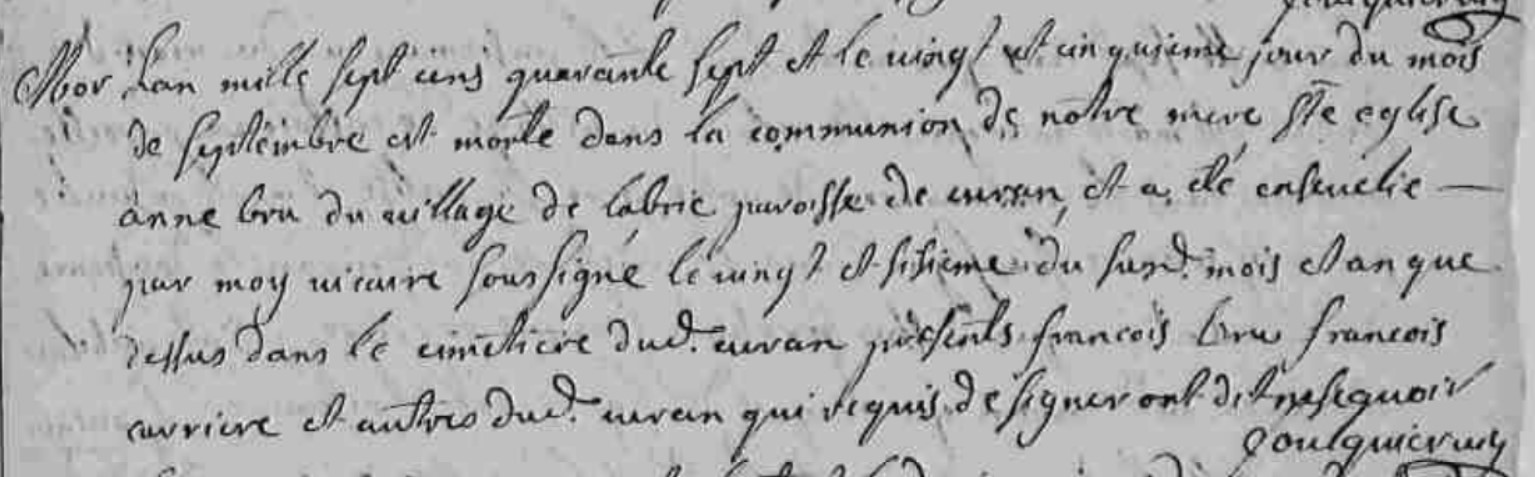 Mor Lan mille sept cens quarante sept et le vingt et cinquieme jour du mois
de septembre est morte dans la communion de notre mere Ste eglise
anne bru du village de labrie paroisse de curan, et a été ensevelie —
par moy vicaire soussigné le vingt et sisieme du susd. mois et an que
dessus dans le cimetiere dud. curan présents francois bru francois
carriere et autres dud. curan qui requis de signer ont dit ne sçavoir